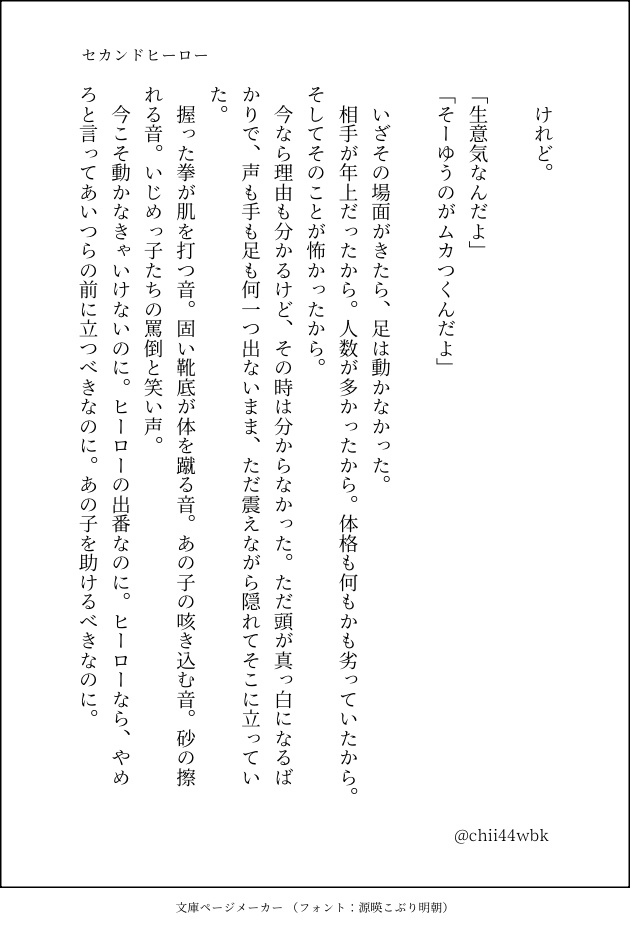 セカンドヒーロー
けれど。
「生意気なんだよ」
「そーゆうのがムカつくんだよ」
いざその場面がきたら、足は動かなかった。
相手が年上だったから。人数が多かったから。体格も何もかも劣っていたから。
そしてそのことが怖かったから。
今なら理由も分かるけど、その時は分からなかった。ただ頭が真っ白になるば
かりで、声も手も足も何一つ出ないまま、ただ震えながら隠れてそこに立ってい
た。
握った拳が肌を打つ音。固い靴底が体を蹴る音。あの子の咳き込む音。砂の擦
れる音。いじめっ子たちの罵倒と笑い声。
今こそ動かなきゃいけないのに。ヒーローの出番なのに。ヒーローなら、やめ
ろと言ってあいつらの前に立つべきなのに。あの子を助けるべきなのに。
@chii44wbk
文庫ページメーカー（フォント：源暎こぶり明朝）